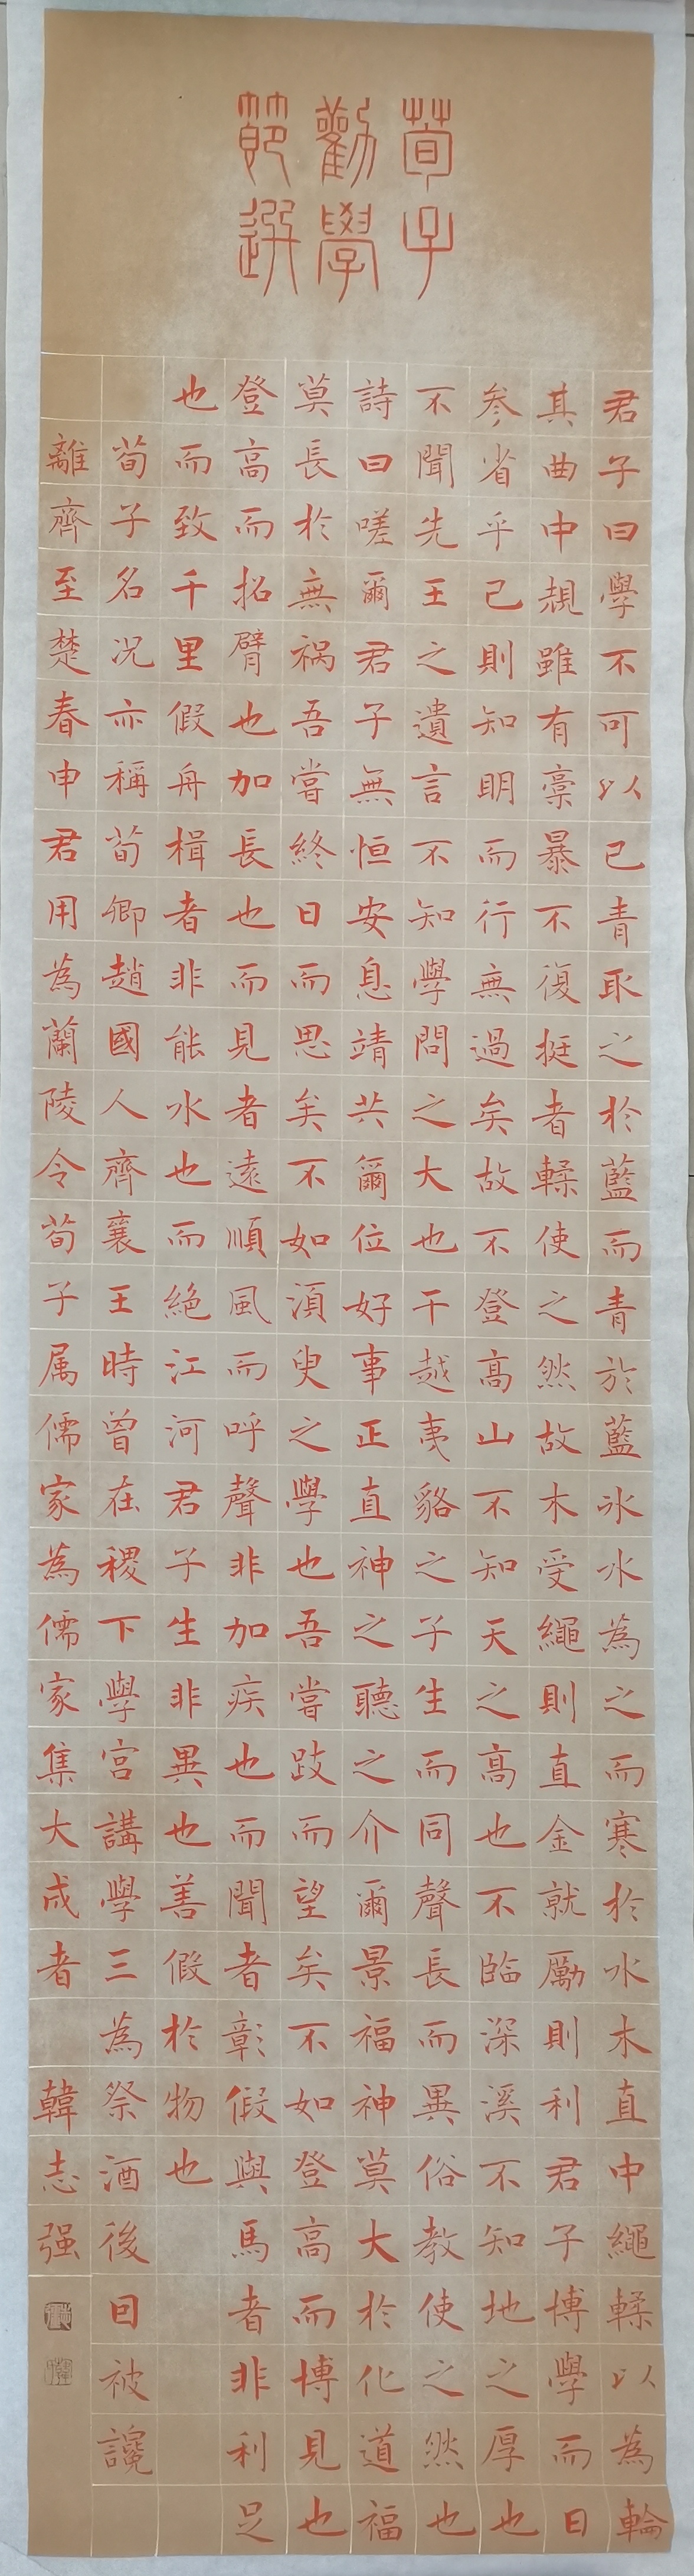 荀子
勸學
節選
君子曰學不可以已青取之於藍而青於藍冰水為之而寒於水木直中繩輮以為輪
其曲中規雖有槀暴不復挺者輮使之然故木受繩則直金就厲則利君子博學而日
參省乎己則知明而行無過矣故不登高山不知天之高也不臨深溪不知地之厚也
不聞先王之遺言不知學問之大也干越夷貉之子生而同聲長而異俗教使之然也
詩曰嗟爾君子無恒安息靖共爾位好事正直神之聽之介爾景福神莫大於化道福
莫長於無禍吾嘗終日而思矣不如須臾之學也吾嘗跂而望矣不如登高而博見也
登高而招臂也加長也而見者遠順風而呼聲非加疾也而聞者彰假與馬者非利足
也而致千里假舟楫者非能水也而絕江河君子生非異也善假於物也
荀子名況亦稱荀卿趙國人齊襄王時曾在稷下學宮講學三為祭酒後因被讒
離齊至楚春申君用為蘭陵令荀子属儒家為儒家集大成者 韓志强